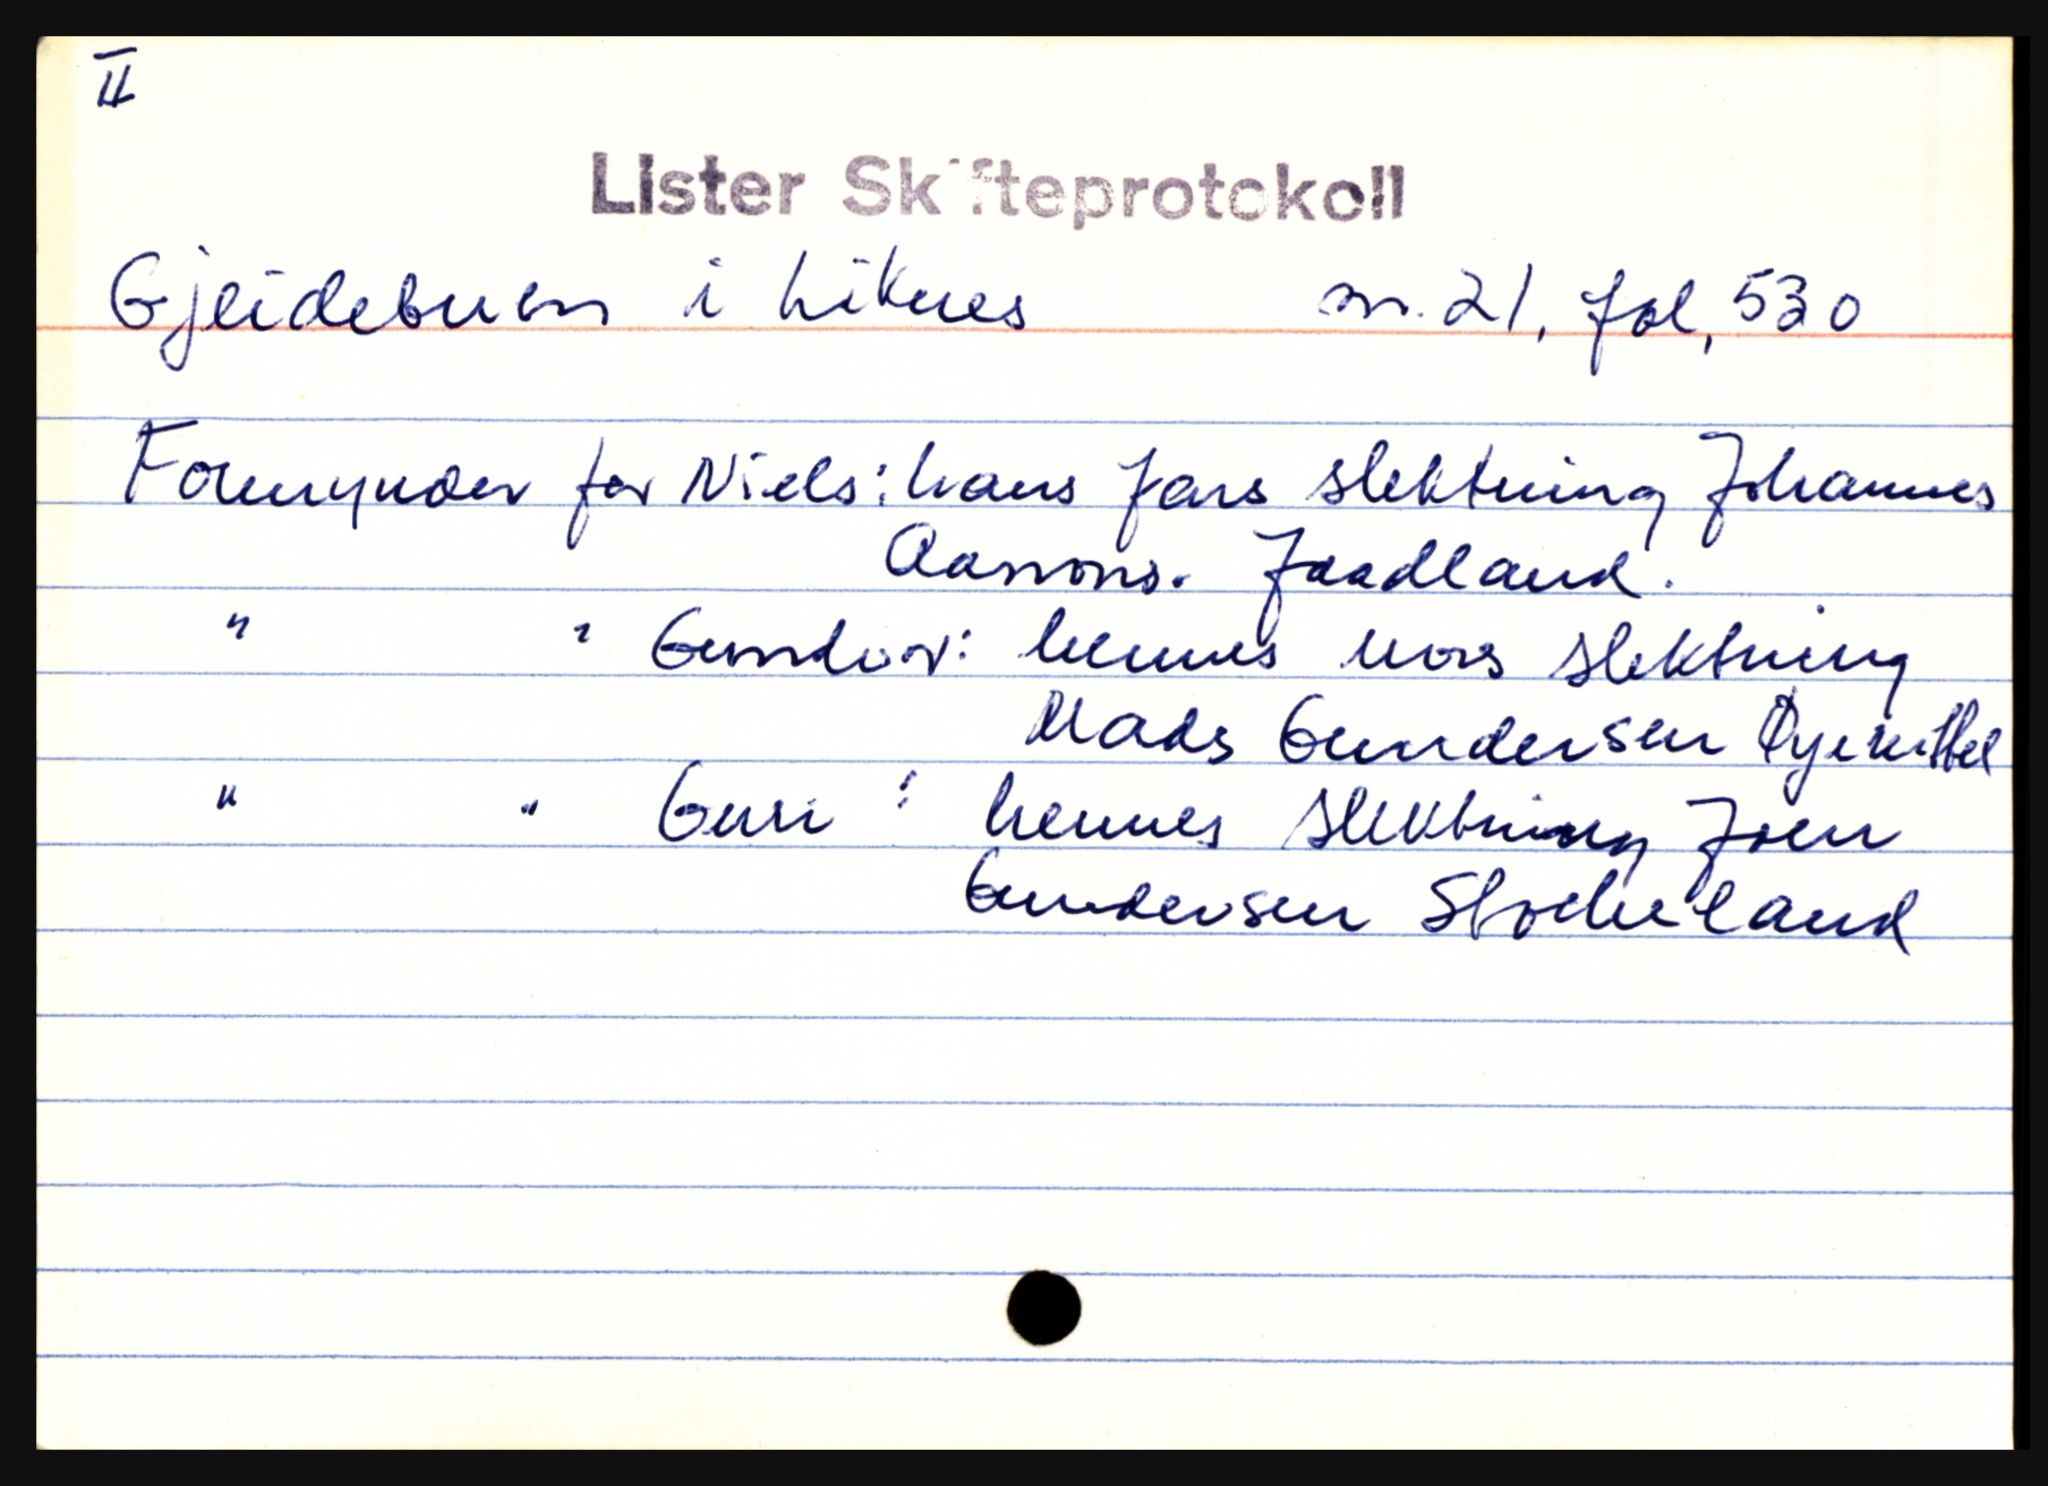 II
Lister Skifteprotokoll
Gjeidebuen i Liknes nr. 21, fol, 530
Formynder for Niels: hans fars slektning Johannes
Aanons. Jaadland.
" " Gundvor: hennes mors slektning
Mads Gundersen Øyekittel
" " Guri : hennes slektning Joen
Gundersen Stocheland